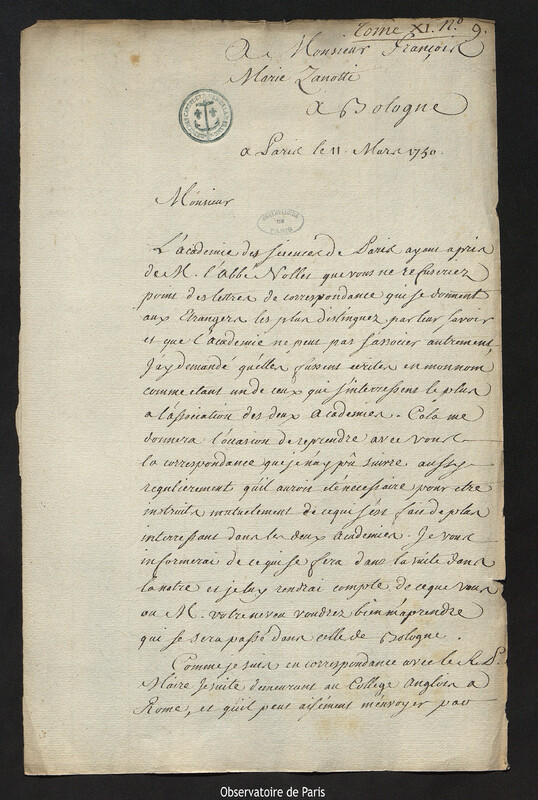 Tome XI. N.º 9.
A Monsieur François
Marie Zanotti
a Bologne
a Paris le 11. Mars 1750.
Monsieur
OBSERVATOIRE
DE
PARIS
L'académie des sciences de Paris ayant apris
de M. l'abbé Nollet que vous ne refuseriez
point des lettres de correspondance qui se donnent
aux Etrangers les plus distinguez par leur savoir
et que l'académie ne peut pas s'associer autrement,
j'ay demandé qu'elles fussent ecrites en mon nom
comme etant un de ceux qui s'interressent le plus
a l'association des deux academies. Cela me
donnera l'occasion de reprendre avec vous
la correspondance que je n'ay pû suivre aussy
regulierement qu'il auroit eté necessaire pour etre
instruits mutuellement de ce qui s'est fait de plus
interressant dans les deux academies. Je vous
informerai de ce qui se fera dans la suite dans
la notre et je luy rendrai compte de ce que vous
ou M. votre neveu voudrez bien m'aprendre
qui se sera passé dans celle de Bologne.
Comme je suis en correspondance avec le R. P.
Maire Jesuite demeurant au College Anglois a
Rome, et qu'il peut aisément m'envoyer par
Observatoire de Paris